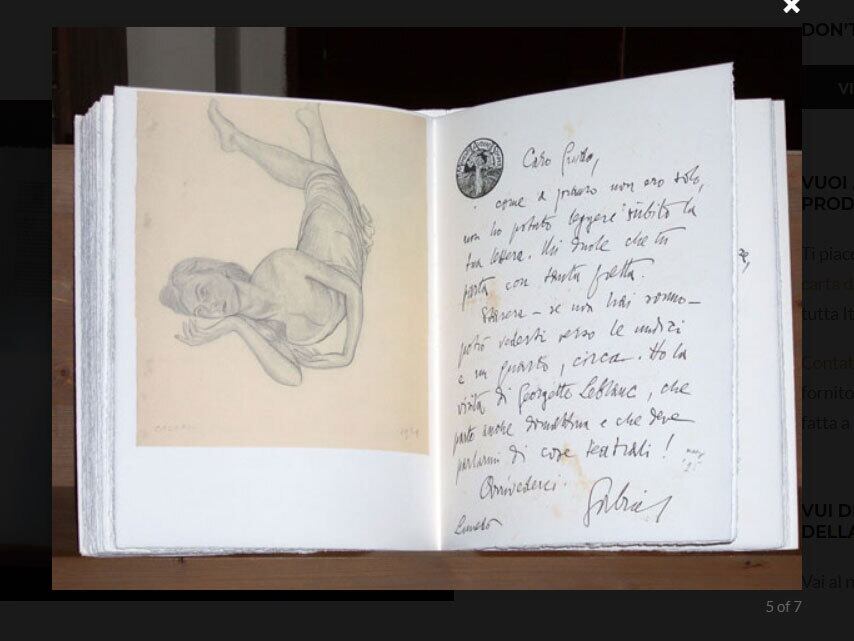 DON'T
VI
VUOI
PROD
Ti piace
carta d
tutta It
Contat
fornito
fatta a
VUI D
DELLA
Vai al n
1924
Caro Guido,
come a pranzo non ero solo,
non ho potuto leggere subito la
tua lettera. Mi duole che tu
parta con tanta fretta.
Stasera – se non hai sonno –
potrò vederti verso le undici
e un quarto, circa. Ho la
visita di Georgette Leblanc, che
parte anche domattina e che deve
parlarmi di cose teatrali!
Arrivederci.
Gabriel
5 of 7